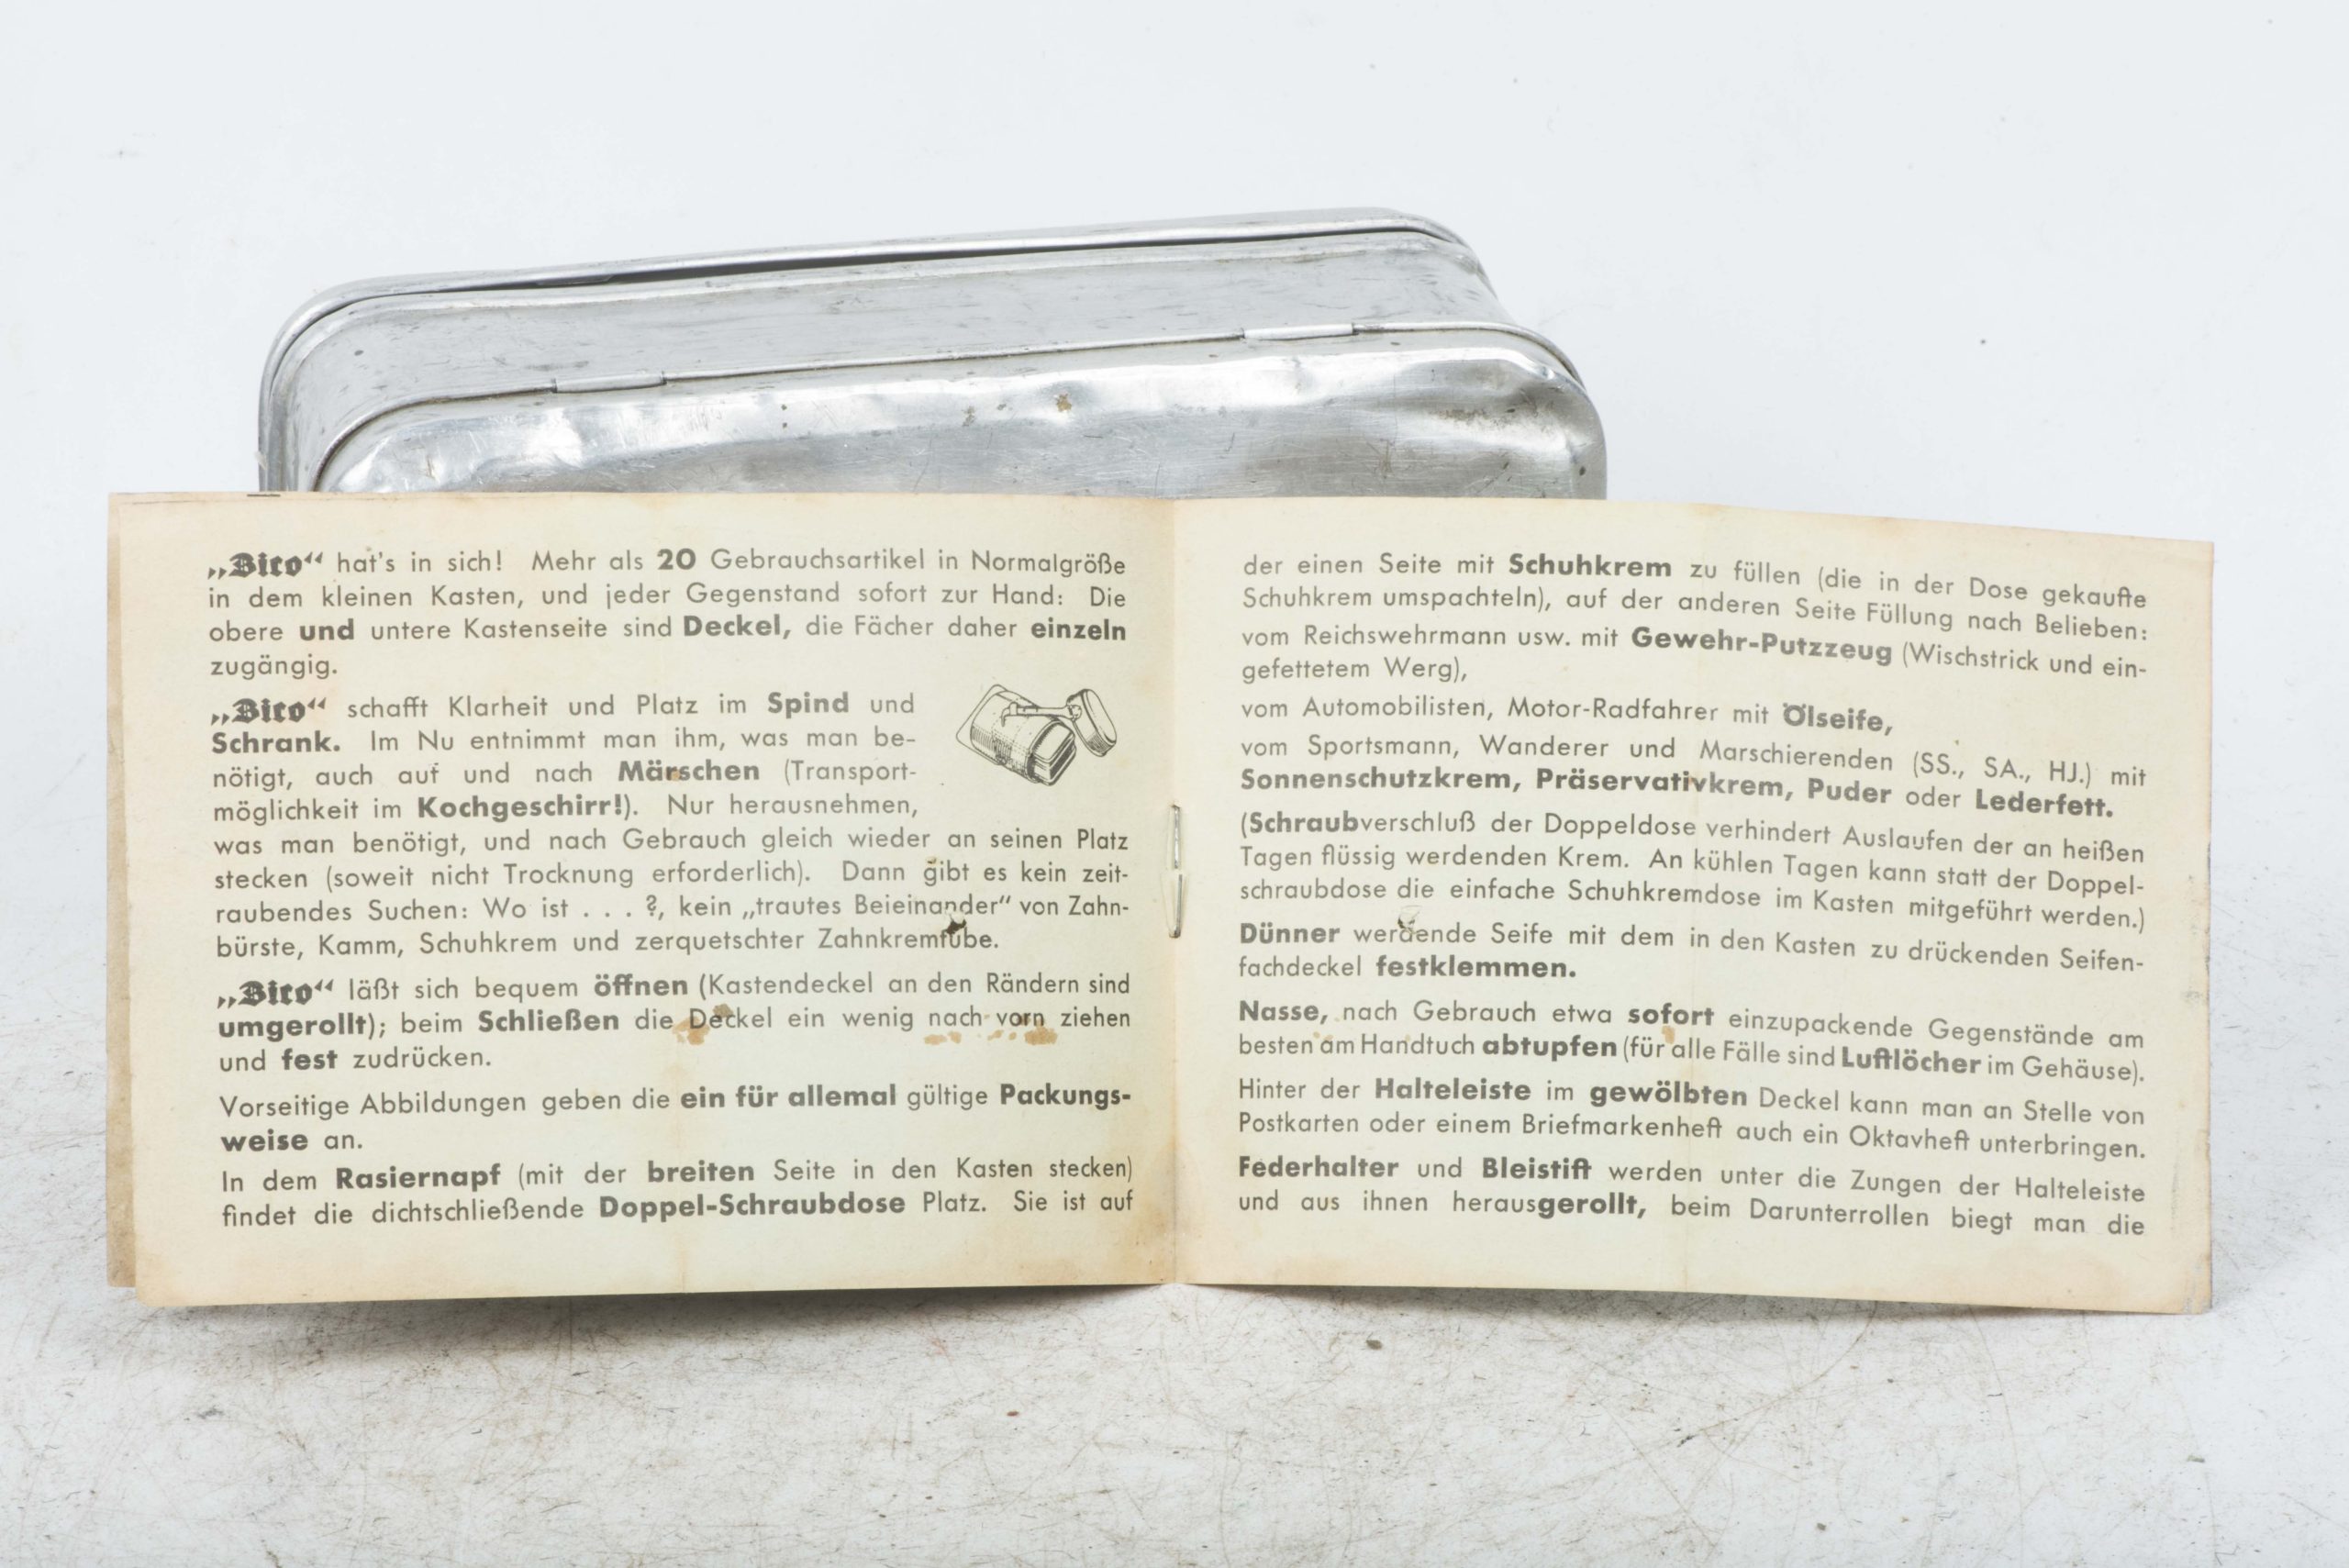 „Bico“ hat's in sich! Mehr als 20 Gebrauchsartikel in Normalgröße
in dem kleinen Kasten, und jeder Gegenstand sofort zur Hand: Die
obere und untere Kastenseite sind Deckel, die Fächer daher einzeln
zugängig.
„Bico“ schafft Klarheit und Platz im Spind und
Schrank. Im Nu entnimmt man ihm, was man be-
nötigt, auch auf und nach Märschen (Transport-
möglichkeit im Kochgeschirr!). Nur herausnehmen,
was man benötigt, und nach Gebrauch gleich wieder an seinen Platz
stecken (soweit nicht Trocknung erforderlich). Dann gibt es kein zeit-
raubendes Suchen: Wo ist . . . ?, kein „trautes Beieinander“ von Zahn-
bürste, Kamm, Schuhkrem und zerquetschter Zahnkremtube.
„Bico“ läßt sich bequem öffnen (Kastendeckel an den Rändern sind
umgerollt); beim Schließen die Deckel ein wenig nach vorn ziehen
und fest zudrücken.
Vorseitige Abbildungen geben die ein für allemal gültige Packungs-
weise an.
In dem Rasiernapf (mit der breiten Seite in den Kasten stecken)
findet die dichtschließende Doppel-Schraubdose Platz. Sie ist auf
der einen Seite mit Schuhkrem zu füllen (die in der Dose gekaufte
Schuhkrem umspachteln), auf der anderen Seite Füllung nach Belieben:
vom Reichswehrmann usw. mit Gewehr-Putzzeug (Wischstrick und ein-
gefettetem Werg),
vom Automobilisten, Motor-Radfahrer mit Ölseife,
vom Sportsmann, Wanderer und Marschierenden (SS., SA., HJ.) mit
Sonnenschutzkrem, Präservativkrem, Puder oder Lederfett.
(Schraubverschluß der Doppeldose verhindert Auslaufen der an heißen
Tagen flüssig werdenden Krem. An kühlen Tagen kann statt der Doppel-
schraubdose die einfache Schuhkremdose im Kasten mitgeführt werden.)
Dünner werdende Seife mit dem in den Kasten zu drückenden Seifen-
fachdeckel festklemmen.
Nasse, nach Gebrauch etwa sofort einzupackende Gegenstände am
besten am Handtuch abtupfen (für alle Fälle sind Luftlöcher im Gehäuse).
Hinter der Halteleiste im gewölbten Deckel kann man an Stelle von
Postkarten oder einem Briefmarkenheft auch ein Oktavheft unterbringen.
Federhalter und Bleistift werden unter die Zungen der Halteleiste
und aus ihnen herausgerollt, beim Darunterrollen biegt man die